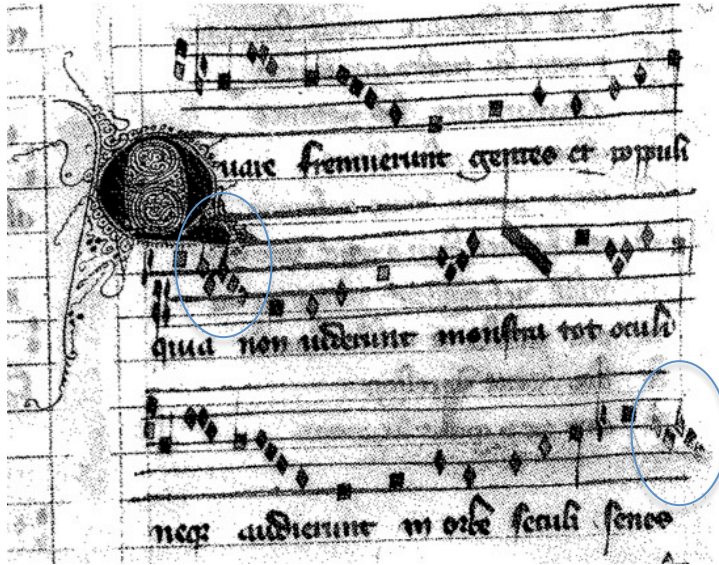 Quare fremuerunt gentes et populi
quia non viderunt monstra tot oculi
neqz audierunt in orbe seculi senes